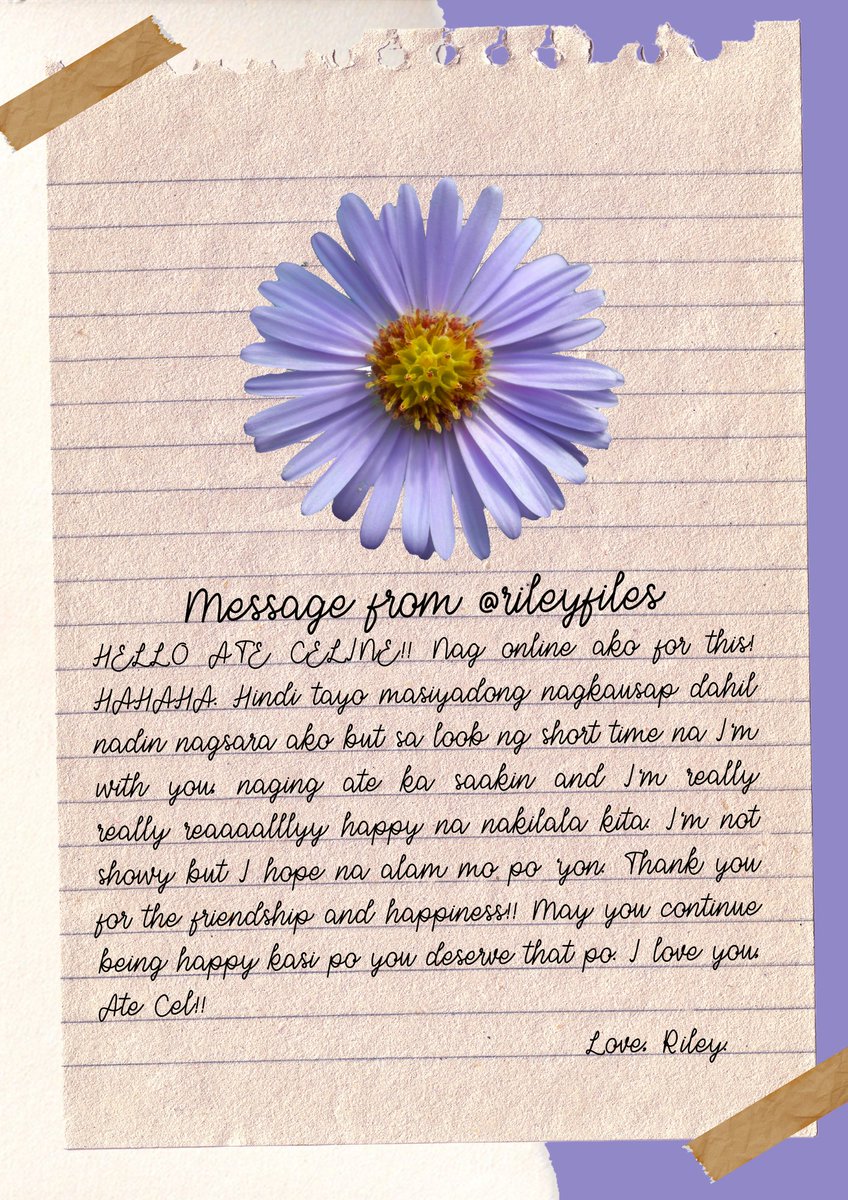 Message from @rileyfiles
HELLO ATE CELINE!! Nag online ako for this!
HAHAHA. Hindi tayo masiyadong nagkausap dahil
nadin nagsara ako but sa loob ng short time na I'm
with you, naging ate ka saakin and I'm really
really reaaaalllyy happy na nakilala kita. I'm not
showy but I hope na alam mo po 'yon. Thank you
for the friendship and happiness!! May you continue
being happy kasi po you deserve that po. I love you,
Ate Cel!!
Love, Riley.